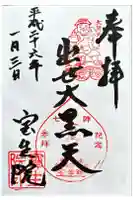 奉拝
出世大黒天
平成二十六年
一月三日
宝生院